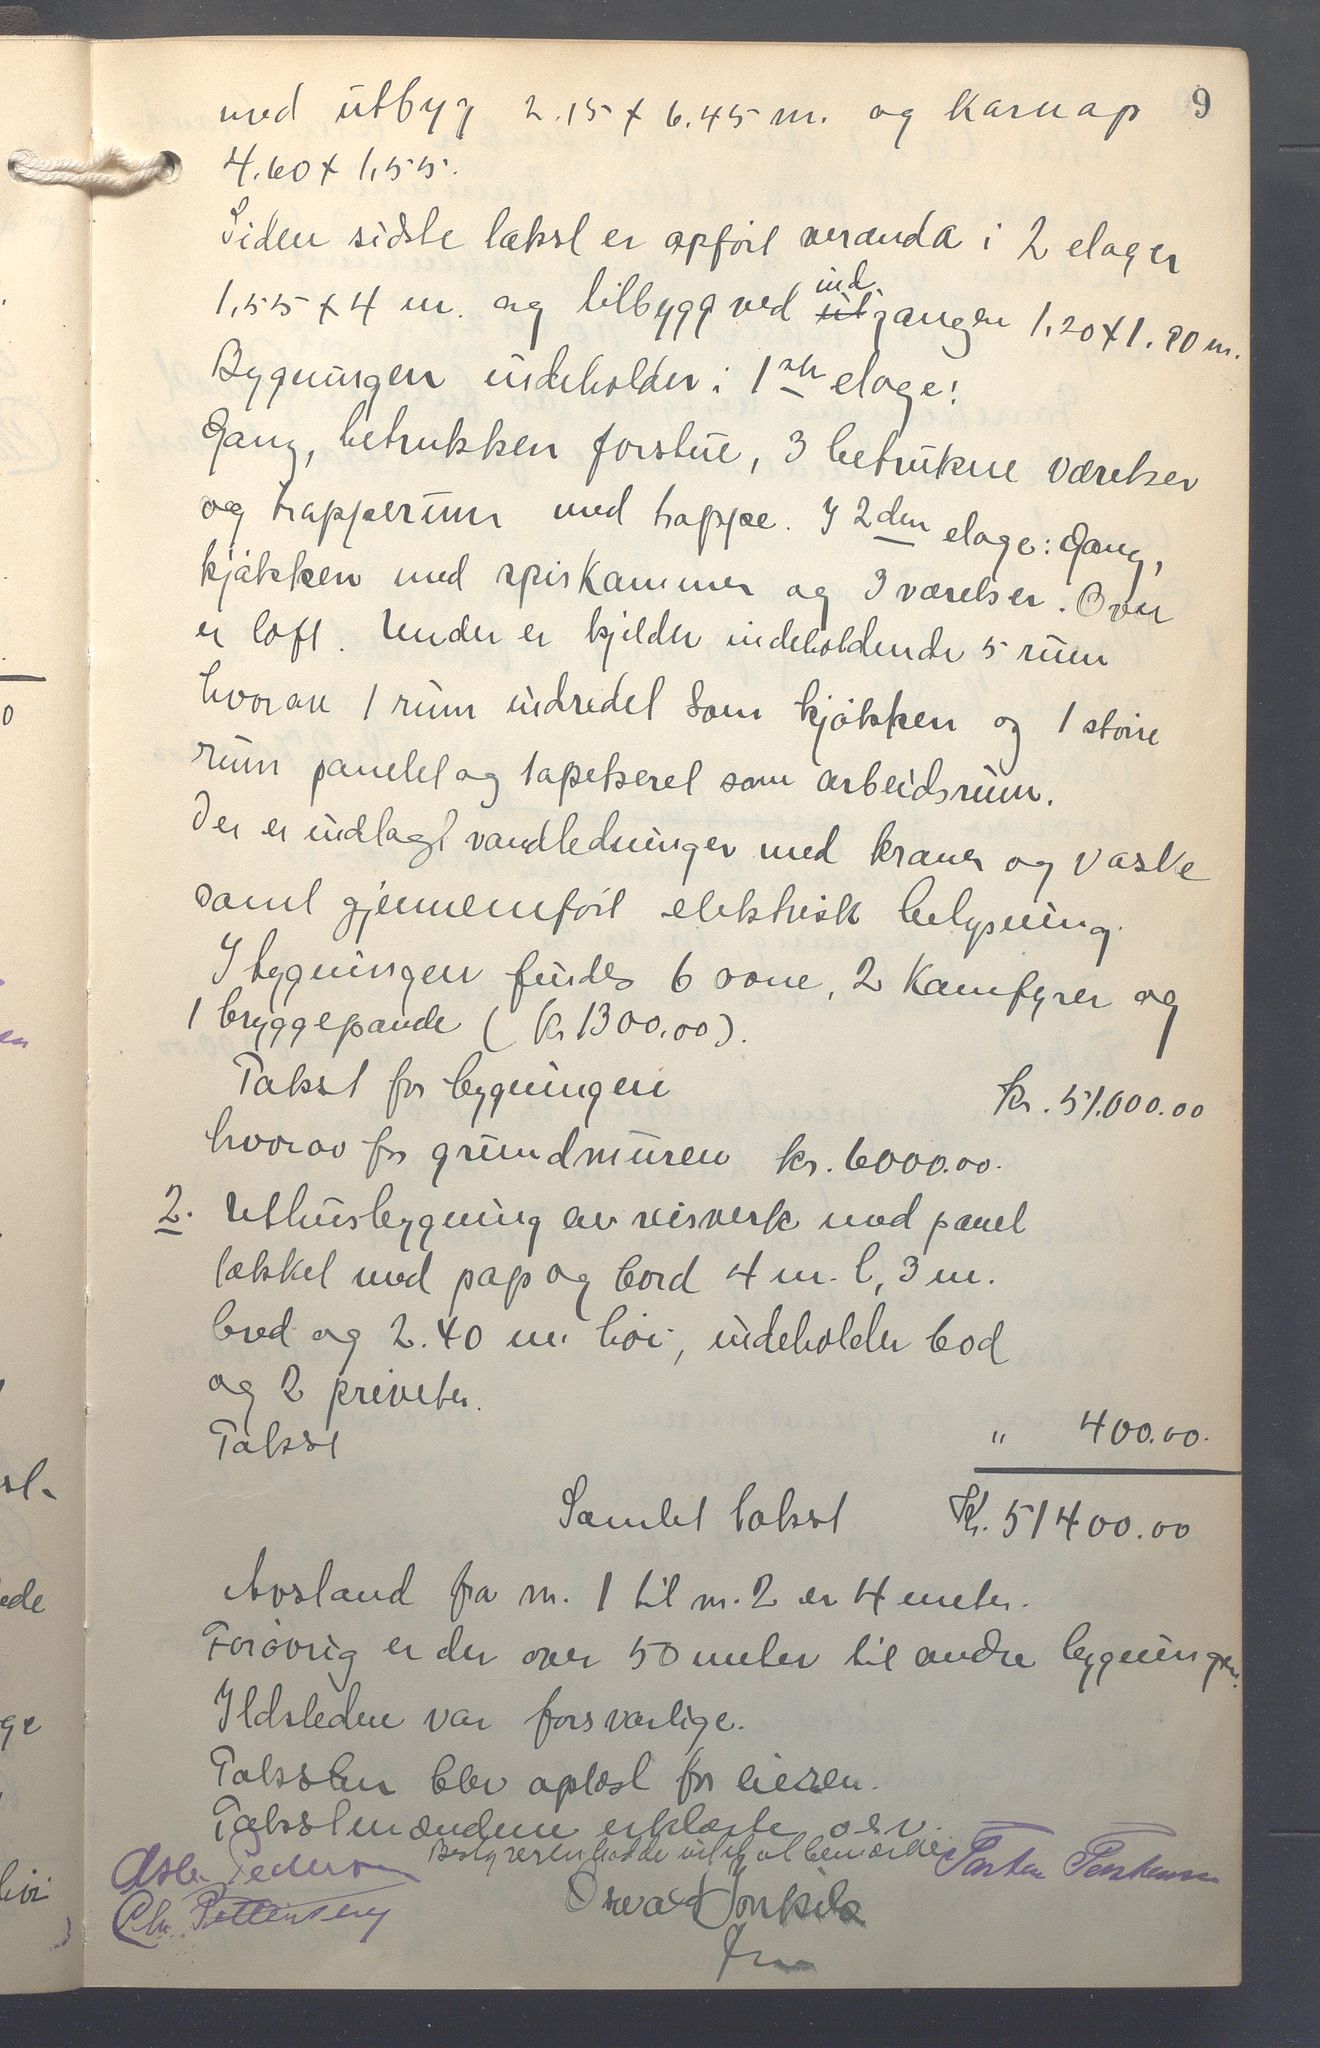 9
med utbyg 2.15 x 6.45 m. og karnap
4.60 x 1,55.
Siden sidste takst er opført veranda i 2 etager
1,55 x 4 m. og tilbygg ved utgangen ind 1,20 x 1.80 m.
Bygningen indeholder i 1ste etage:
Gang, betrukken forstue, 3 betrukne værelser
og trapperum med trappe. I 2den etage: Gang,
kjøkken med spiskammer og 3 værelser. Over
er loft. Under er kjelder indeholdende 5 rum
hvorav 1 rum indredet som kjøkken og 1 større
rum panelet og tapetseret som arbeidsrum.
Der er indlagt vandledninger med kraner og vaske
samt gjennemført elektrisk belysning.
I bygningen findes 6 ovne, 2 komfyrer og
1 bryggepande (kr 1300.00).
Takst for bygningen kr. 51.000.00
hvorav for grundmuren kr. 6000.00.
2. Uthusbygning av reisverk med panel
tækket med pap og bord 4 m. l, 3 m.
bred og 2.40 m høi, indeholder bod
og 2 priveter.
Takst " 400.00.
Samlet takst Kr. 51400.00
Avstand fra nr. 1 til nr. 2 er 4 meter.
Forøvrig er der over 50 meter til andre bygninger.
Ildstedene var forsvarlige.
Taksten blev oplæst for eieren.
Takstmændene erklærte osv.
Bestyreren hadde intet at bemærke
Pedersen
Chr. Pettersen